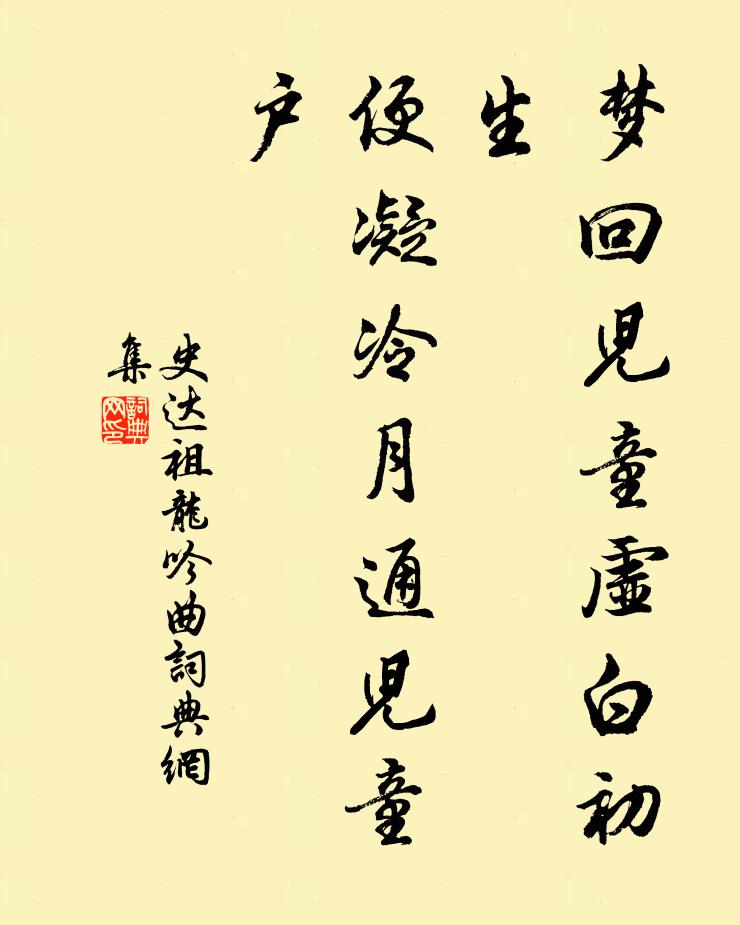 梦回児童虚白初
生
便凝冷月通児童
户
史达祖龍吟曲詞典網
集
詞典
网印